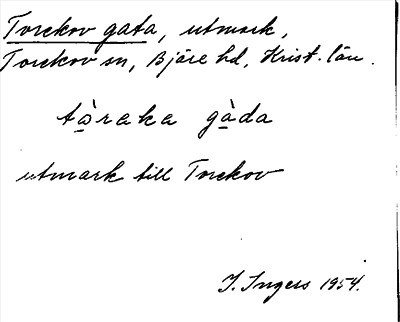 Torekov gata, utmark,
Torekov sn, Bjäre hd, Krist. län.
tò̱raka gà̱da
utmark till Torekov
I. Ingers 1954.